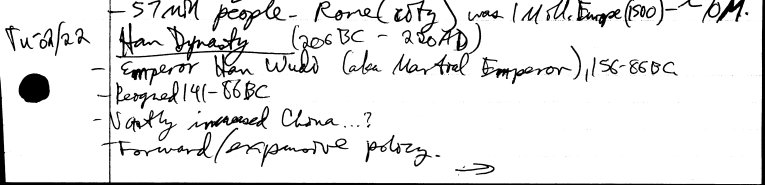 - 57 mill people - Rome (city) was 1 Mill. Europe (1500) - ~ 70M.
Tu-02/22 Han Dynasty (206 BC - 220 AD)
- Emperor Han Wudi (aka Martial Emperor), 156-86 BC
- Reigned 141-86 BC
- Vastly increased China...?
- Forward/expansive policy.
→